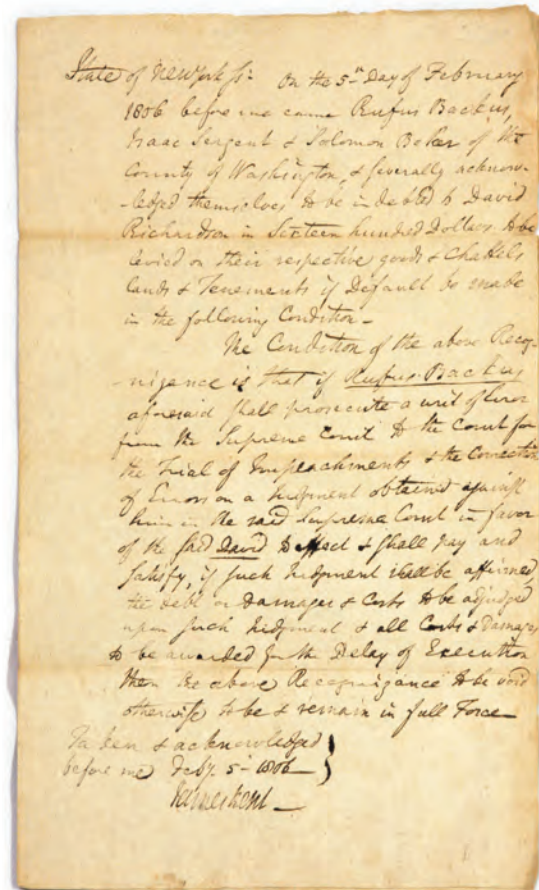 State of New York ss: On the 5th Day of February
1806 before me came Rufus Backus,
Isaac Sergent & Solomon Baker of the
County of Washington, & severally acknow-
-ledged themselves to be indebted to David
Richardson in Sixteen hundred Dollars to be
levied on their respective goods & Chattels
lands & Tenements if Default be made
in the following Condition -
The Condition of the above Recog-
-nizance is that if Rufus Backus
aforesaid shall prosecute a writ of Error
from the Supreme Court to the Court for
the Trial of Impeachments & the Correction
of Errors on a Judgment obtained against
him in the said Supreme Court in favor
of the said David to effect & shall pay and
satisfy, if such Judgment shall be affirmed,
the debt or Damages & Costs to be adjudged
upon such Judgment & all Costs & Damages
to be awarded for the Delay of Execution
then the above Recognizance to be void
otherwise to be & remain in full Force -
Taken & acknowledged
before me Feby. 5 - 1806 -
James Kent -